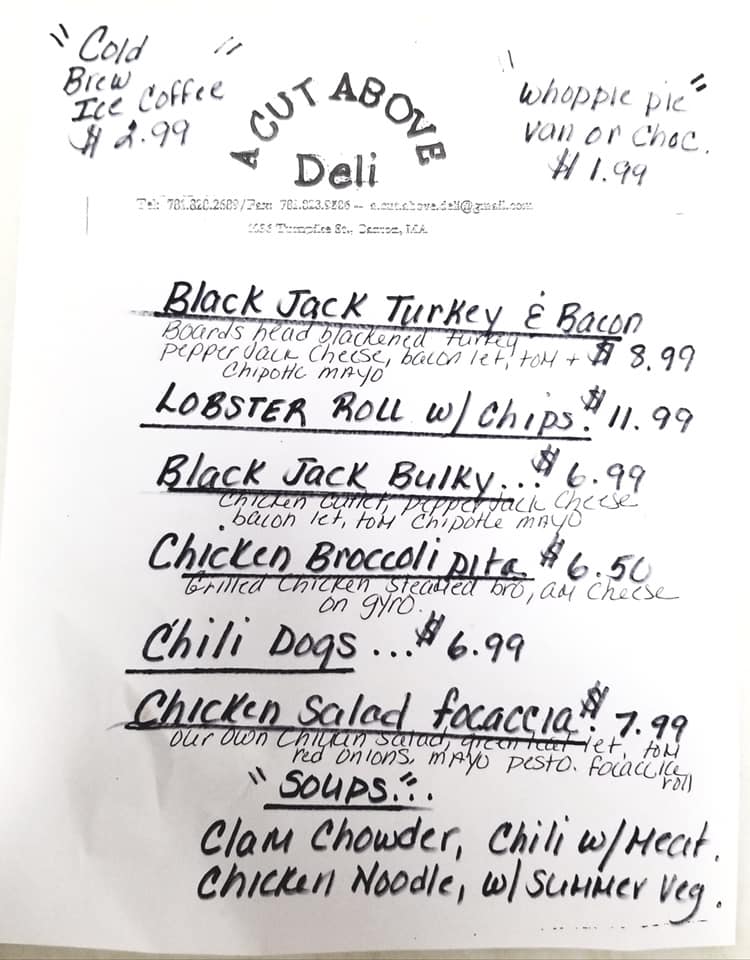 "Cold "
Brew
Ice Coffee
$ 2.99
A CUT ABOVE
Deli
"whoppie pie"
van or choc.
$ 1.99
Tel: 781.828.2689/Fax: 781.823.9886 -- a.cut.above.deli@gmail.com
Turnpike St., Canton, MA
Black Jack Turkey & Bacon
Boards head blackened turkey
pepper Jack cheese, bacon let, tom + $ 8.99
Chipotle mayo
LOBSTER Roll w/ Chips. $ 11.99
Black Jack Bulky... $ 6.99
Chicken Cutlet, pepper jack cheese
bacon let, tom chipotle mayo
Chicken Broccoli pita $ 6.50
Grilled chicken steamed bro, am cheese
on gyro.
Chili Dogs ... $ 6.99
Chicken Salad focaccia. $ 7.99
our own chicken salad, green leaf let, tom
red onions, mayo pesto. focaccia
roll
"Soups."..
Clam Chowder, Chili w/Meat.
Chicken Noodle, w/ Summer Veg.